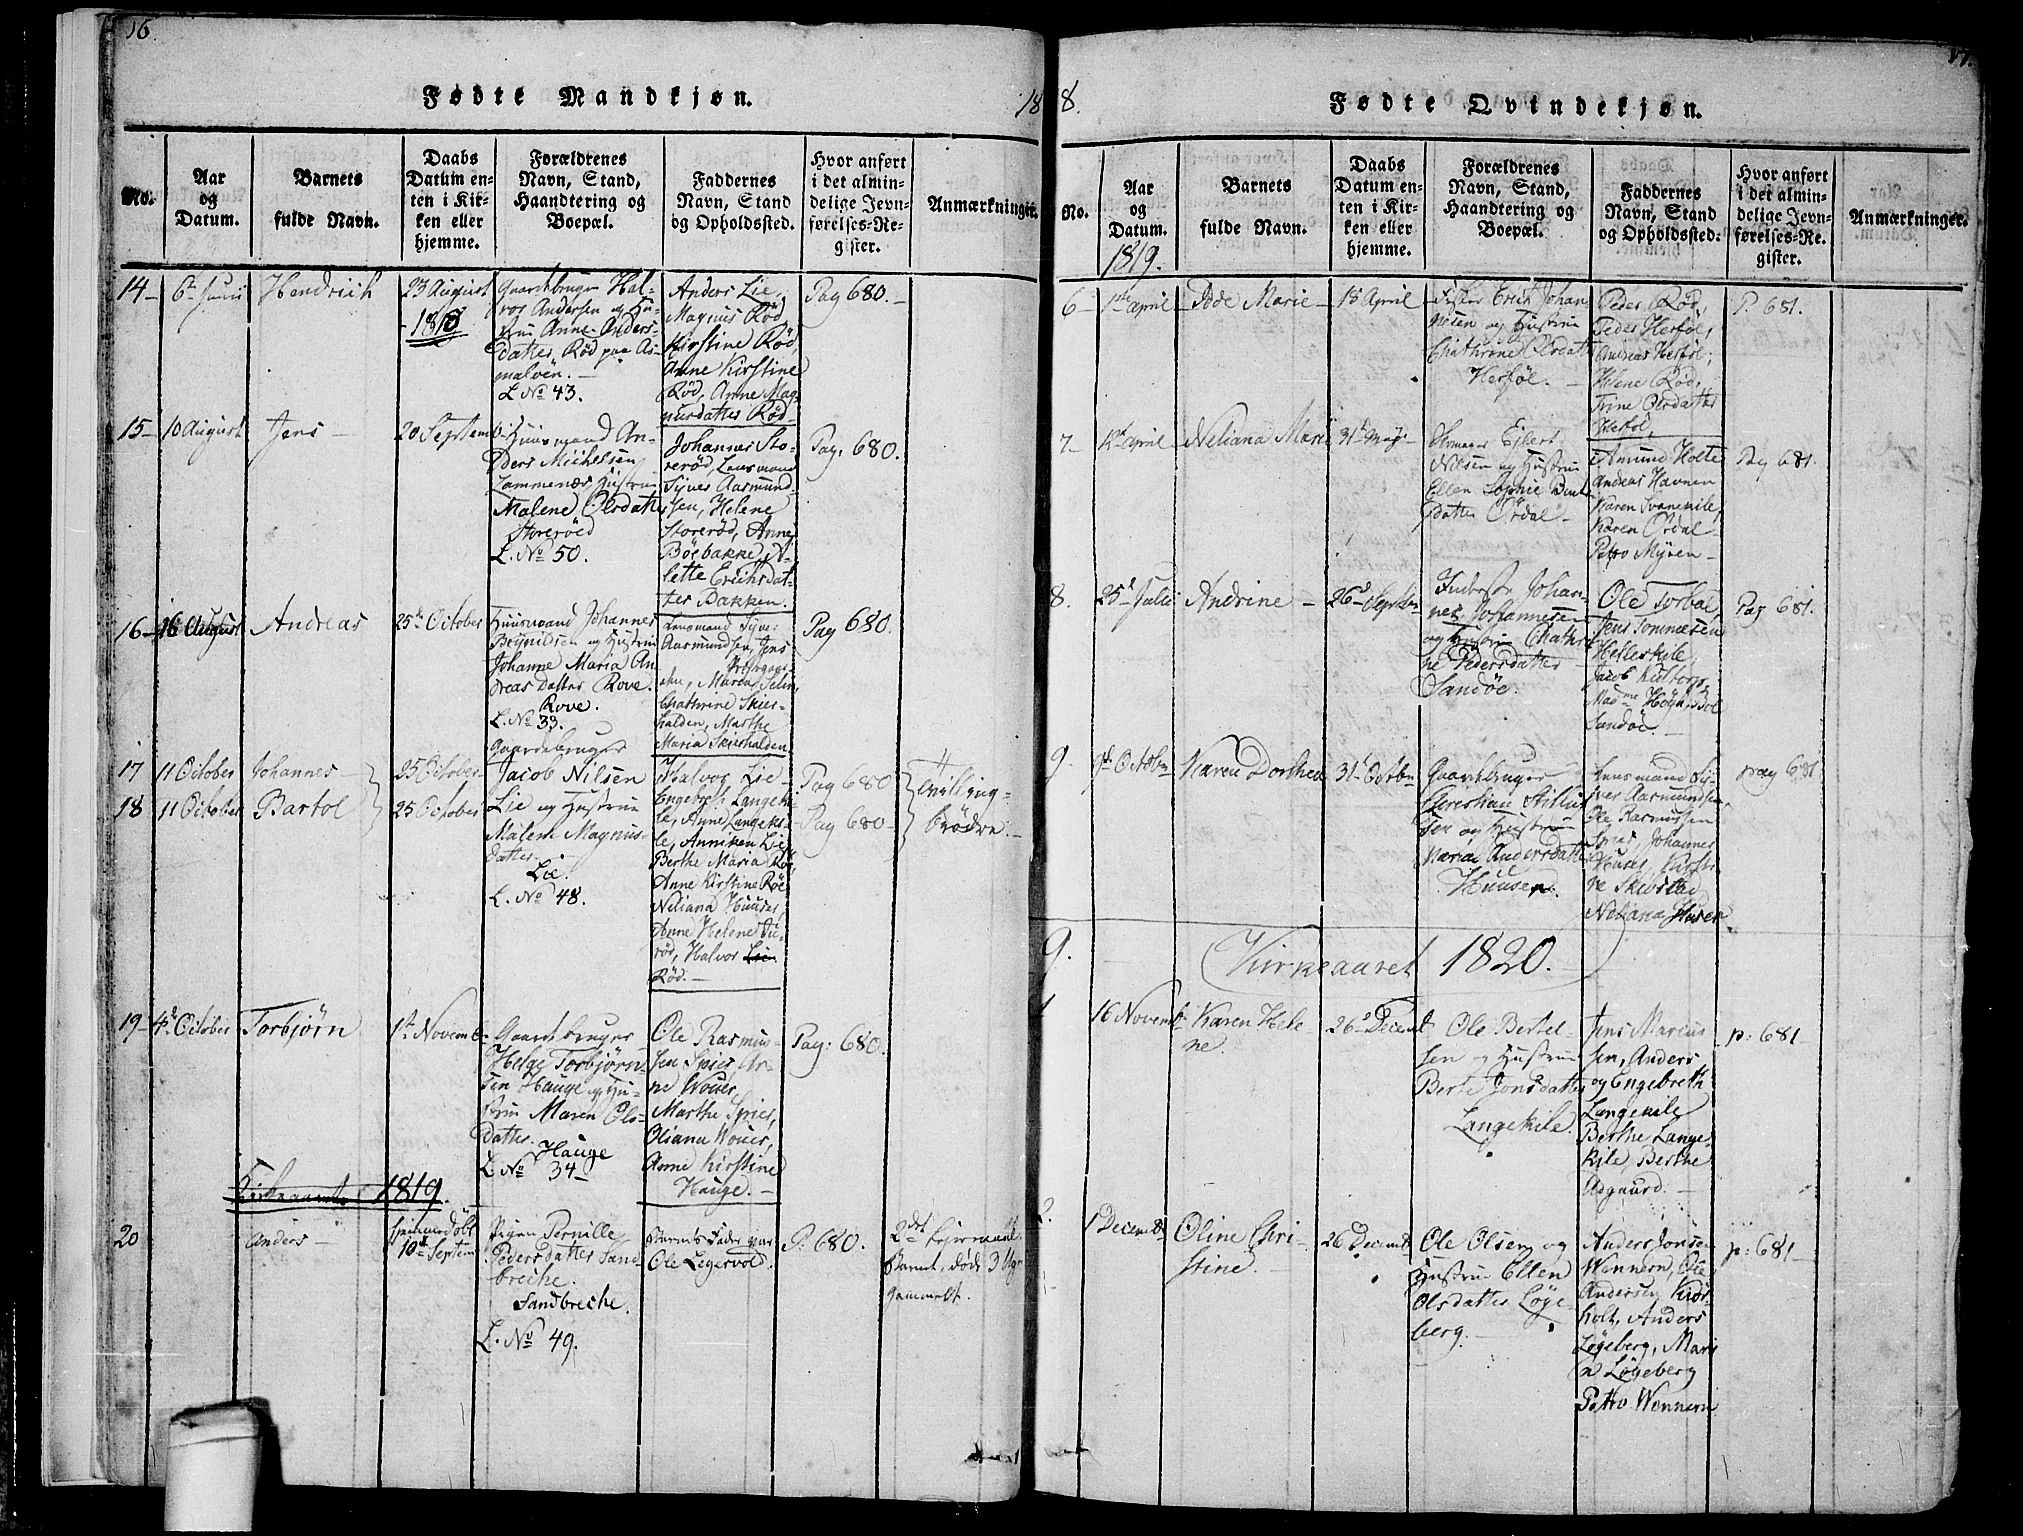 16
Fødte Mandkjøn.
18
No.
Aar
og
Datum.
Barnets
fulde Navn.
Daabs
Datum en-
ten i Kir-
ken eller
hjemme.
Forældrenes
Navn, Stand,
Haandtering og
Boepæl.
Faddernes
Navn, Stand
og Opholdssted.
Hvor anført
i det almin-
delige Jevn-
førelses-Re-
gister.
Anmærkninger.
14
6te Juni
Hendrich
23 August
1818
Gaardbruger Hal-
vor Andersen og Hu-
stru Anne Anders-
datter Rød paa As-
malöen.
L No 43.
Anders Lie,
Magnus Rød
Kirstine Rød,
Anne Kirstine
Rød, Anne Mag-
nusdatter Rød
Pag 680.
15
10 August
Jens
20 Septemb
Huusmand An-
ders Michelsen
Hustrue
Malene Olsdatter
Storerød
L. No 50.
Johannes Sto-
rerød, Lensmand
Syver Aasmund-
sen, Helene
Storerød, Anne
Böebakke, A-
lette Erichsdat-
ter Bakken.
Pag. 680.
16
16 August
Andreas
25de October
Huusmand Johannes
Brynildsen og Hustrue
Johanne Maria An-
dreas datter Rove.
Rove.
L. No 33.
Lensmand Syver
Aasmundsen, Jens
Chathrine Skier-
halden, Marthe
Maria Skierhalden
Pag 680.
17
11 October
Johannes
25 October
18
11 October
Bartol
25 October
Gaardebruger
Jacob Nilsen
Lie og Hustrue
Malene Magnus-
datter.
Lie.
L. No 48.
Halvor Lie
Engebreth Langeki-
le, Anne Langeki-
le, Anniken Lie,
Berthe Maria Rød
Anne Kirstine Röe
Neliana Huuser,
Anne Helene Bu-
rød, Halvor Lie
Rød.
Pag 680
Pag 680
Tvilling-
brödre.
19
4de October
Torbjørn
1te Novemb
Gaardbruger
Helge Torbjørn-
sen Hauge og Hu-
stru Maren Ols-
datter.
Hauge
L. No 34
Ole Rasmus-
sen Spier, An-
ne Wouer,
Marthe Spier,
Oliana Wouer,
Anne Kirstine
Hauge.
Pag: 680.
Kirkeaaret 1819.
20
Anders
hjemmedöbt
10de Septem
Pigen Pernille
Pedersdatter Sand-
breche.
Sandbreche.
L. No 49.
Barnets Fader var
Ole Legervold.
P. 680.
2det Leiermaal.
Barnet døde 3 Uger
gammelt.
8.
Fødte Qvindekjøn.
17.
No.
Aar
og
Datum.
1819.
Barnets
fulde Navn.
Daabs
Datum en-
ten i Kir-
ken eller
hjemme.
Forældrenes
Navn, Stand,
Haandtering og
Boepæl.
Faddernes
Navn, Stand
og Opholdssted.
Hvor anført
i det almin-
delige Jevn-
førelses-Re-
gister.
Anmærkninger.
6
1te April
Marie
18 April
Fisker Erich Johan-
nesen og Hustrue
Chathrine Olsdatter
Herföl.
Peder Rød,
Peder Herföl,
Andreas Herföl,
Helene Rød,
Trine Olsdatter
Herföl,
P. 681.
7
12te April
Neliana Marie
31te May
Ejlert
Nilsen og Hustrue
Ellen Sophie Bent-
datter Ördal
Amund Holte
Andreas Havnen
Karen Svanekile,
Karen Ördal
Petro Myren
Pag 681.
8.
25de Julii
Andrine
26de Septbr
Inderste Johan-
nes Johannesen
og Hustrue Chathri-
ne Pedersdatter
Sandöe.
Ole Torbal,
Jens Tommesen
Helleskile,
Jacob Kultorp,
Sandöe.
Pag 681.
9.
9de Octobr
Karen Dorthea
31te Octobr
Gaardbruger
Christian
sen og Hustrue
Maria Andersdatter
Huusen.
Lensmand Sy-
ver Aasmundsen,
Ole Rasmussen
Spier, Johannes
Huser, Kirsti-
ne Skibstad
Neliana Huser
pag 681
9.
Kirkeaaret 1820.
1
16 Novemb
Karen Hele-
ne.
26de Decemb
Ole Bertel-
sen og Hustrue
Berte Jonsdatter
Langekile.
Jens Marius-
sen, Anders
og Engebreth
Langekile
Berthe Lange-
kile, Berthe
Adgaard.
p: 681
2.
1 Decemb
Oline Chri-
stine.
26 Decemb
Ole Olsen og
Hustrue Ellen
Olsdatter Løge-
berg.
Anders Jonsen
Wennern, Ole
Andersen Krös-
holt, Anders
Løgeberg, Mari-
n Løgeberg
Petro Wennern
p: 681